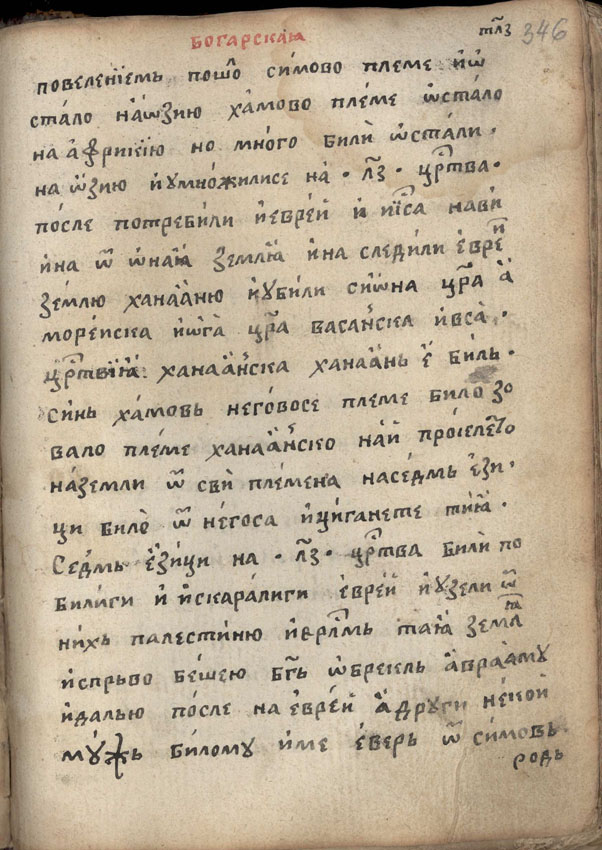 БОГАРСКАꙖ
тл҃з 346
повеленїемь пошло симово племе и҆ ѡ
стало на ѡ҆зию хамово племе ѡ҆стало
на а҆фрикїю но много били ѡ҆стали ·
на ѡ҆зию и҆ умножилисе на · л҃з · црⷭ҇тва ·
после потребили и҆ еврей и҆ и҆їсⷭа нави
и҆на ѿ ѡ҆наꙗ землꙗ и҆ наследили еврей
землю ханаа҆ню и҆ ꙋбили сиѡ҆на цр҃а а҆
морейска и҆ ѡ҆га цр҃а васан҆ска и҆ вса ·
црⷭ҇твїꙗ ханаан҆ска ханаа҆нь е҆ биль ·
синь хамовь неговосе племе било зо
вало племе ханаан҆ско най проклето
на земли ѿ сви племена на седмь ези ·
ци било ѿ негоса и҆ циганете тиꙗ ·
Седмь е҆зици на · л҃з · црⷭ҇тва били по
били ги и҆ и҆скарали ги еврей и҆ узели ѿ
нихь палестиню и҆ ерⷭ҇лимь таꙗ землꙗ
и҆спрьво бешею бг҃ь ѡ҆брекль а҆враа҆му
и҆ далью после на еврей а҆ други некой
мꙋжь било му и҆ме еверь ѿ симовь
родь